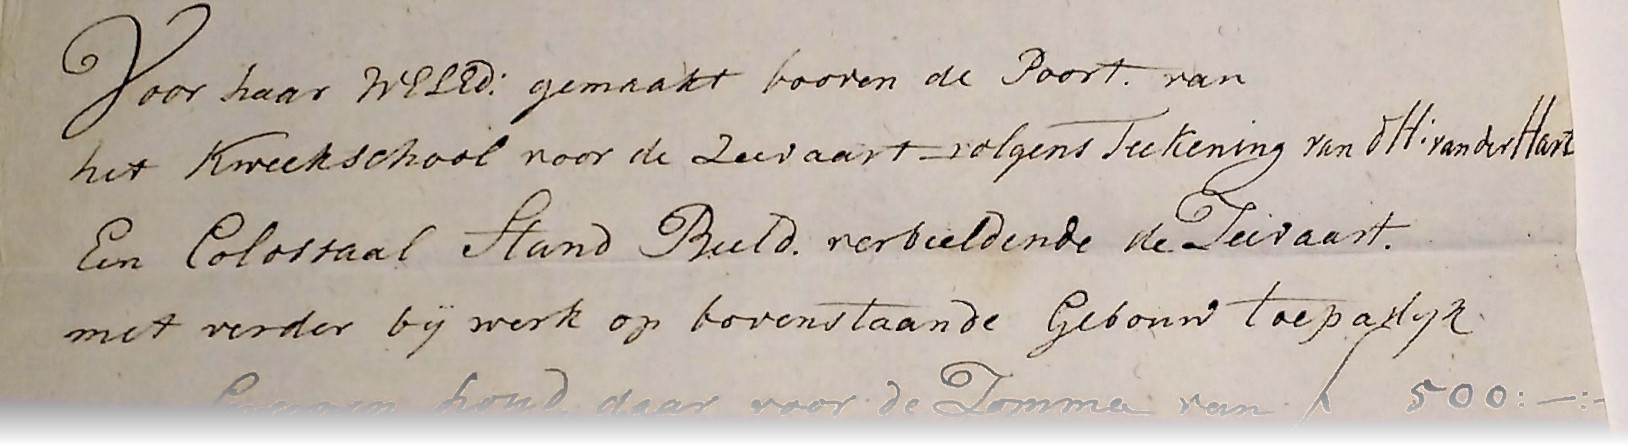 Voor haar WELEd: gemaakt booven de Poort. van
het Kweekschool voor de Zeevaart volgens Teekening van d H: van der Hart
Een Colossaal Stand Beeld. verbeeldende de Zeevaart.
met verder bij werk op bovenstaande Gebouw toepaslijk
houd daar voor de Somma van ƒ 500:—:-